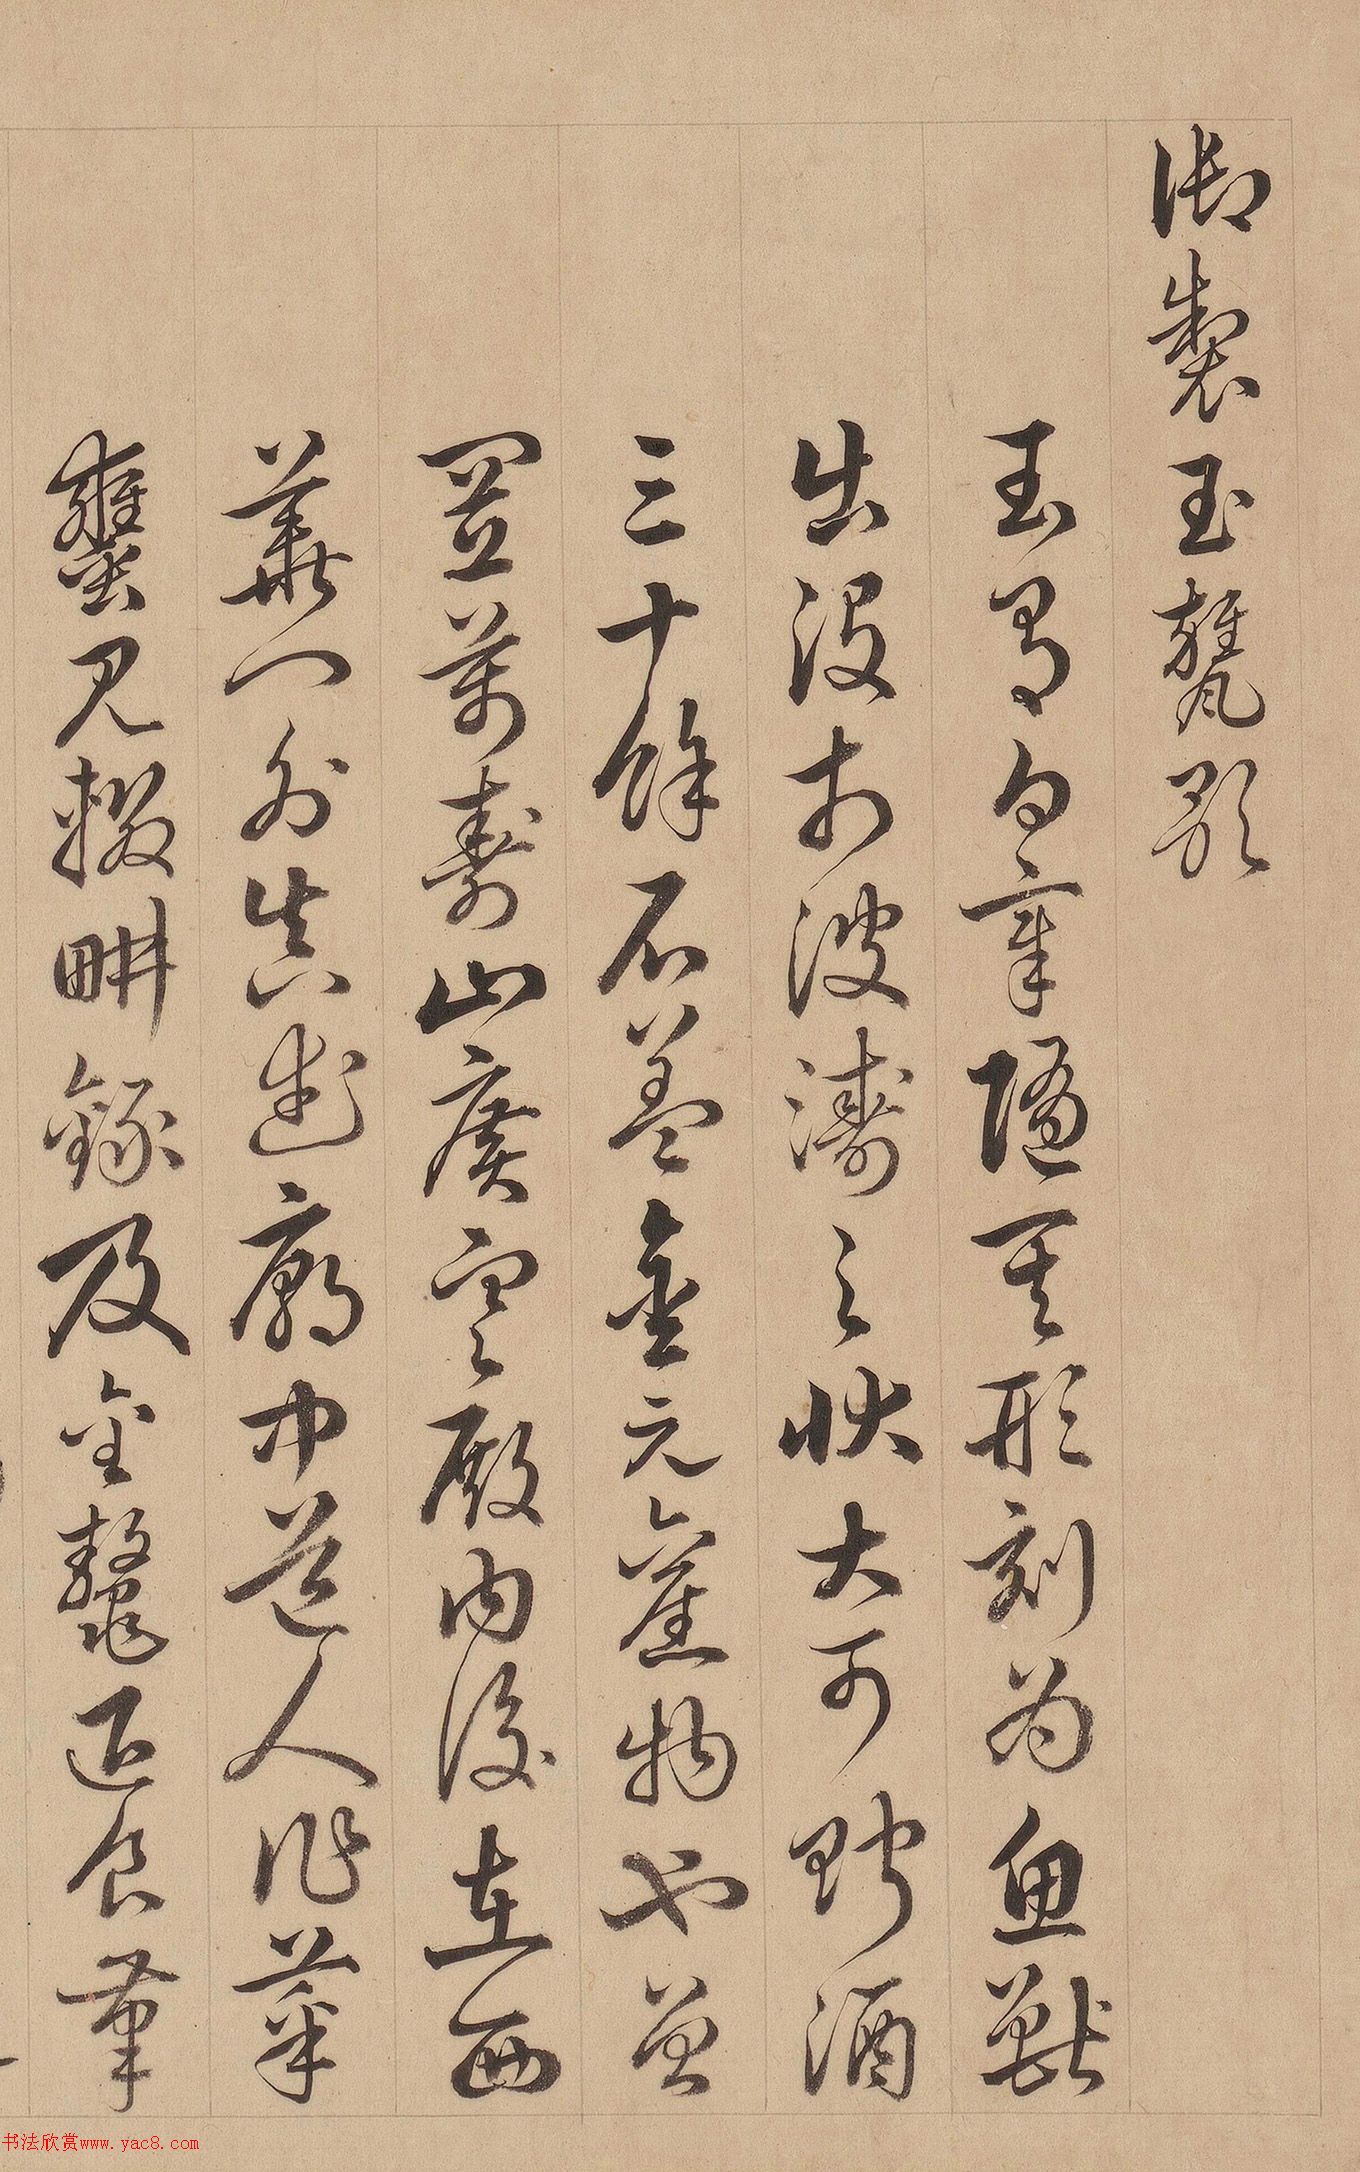 御製玉甕歌
玉有白章隨其形刻為魚獸
出沒於波濤之狀大可貯酒
三十餘石蓋金元舊物也曾
置萬壽山廣寒殿內後在西
華門外真武廟中道人作菜
甕見輟畊錄及金鰲退食筆
书法欣赏www.yac8.com